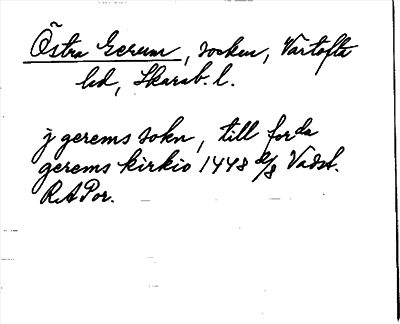 Östra Gerum, socken, Vartofta
hd, Skarab. l.
j gerems sokn, till forda
gerems kirkio 1448 2/8 Vadst.
RAPor.